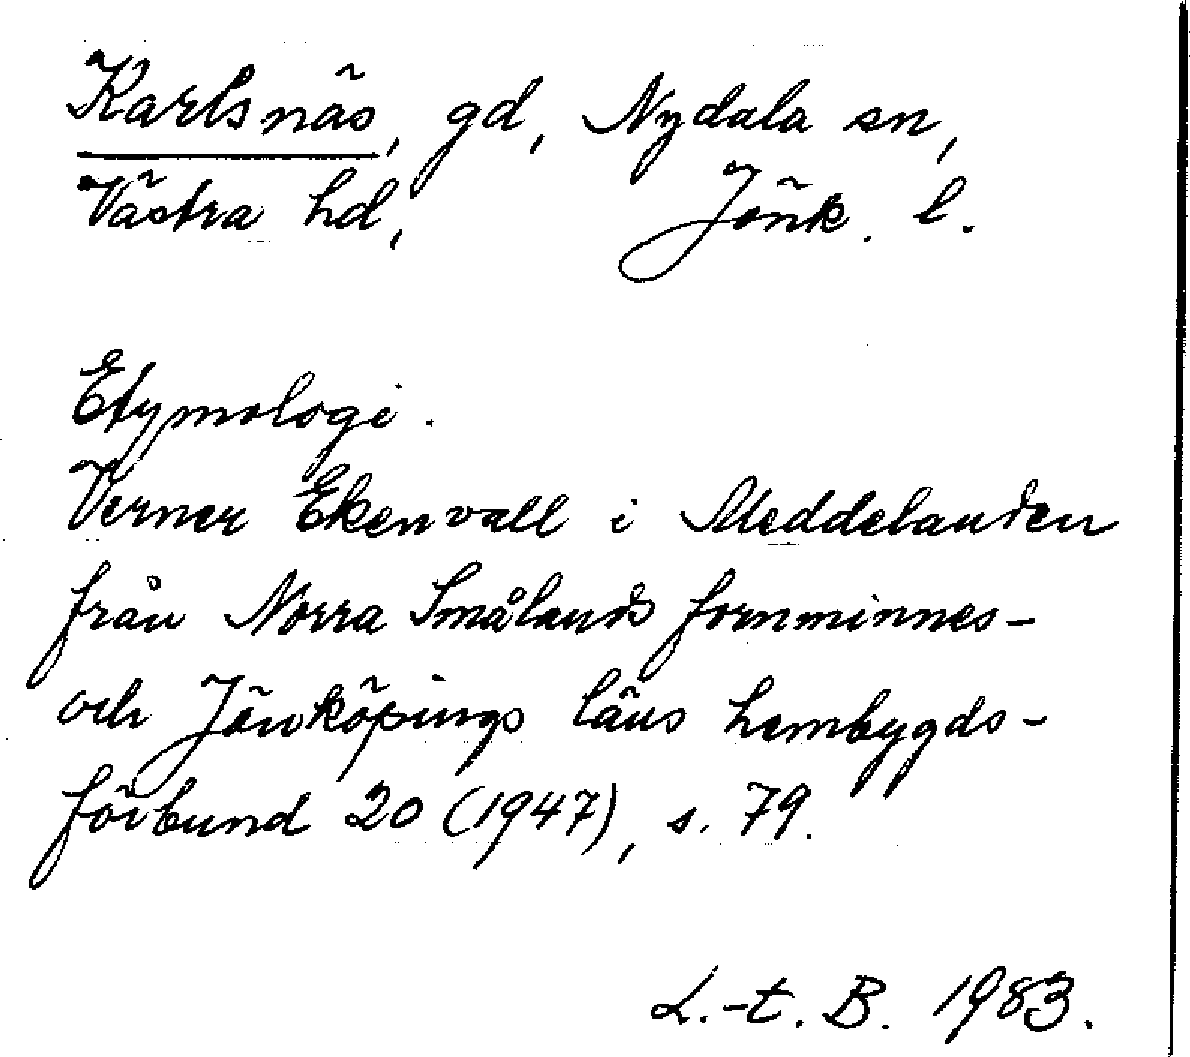 Karlsnäs, gd, Nydala sn,
Västra hd, Jönk. l.
Etymologi.
Verner Ekenvall i Meddelanden
från Norra Smålands fornminnes-
och Jönköpings läns hembygds-
förbund 20 (1947), s. 79.
L.-t. B. 1983.